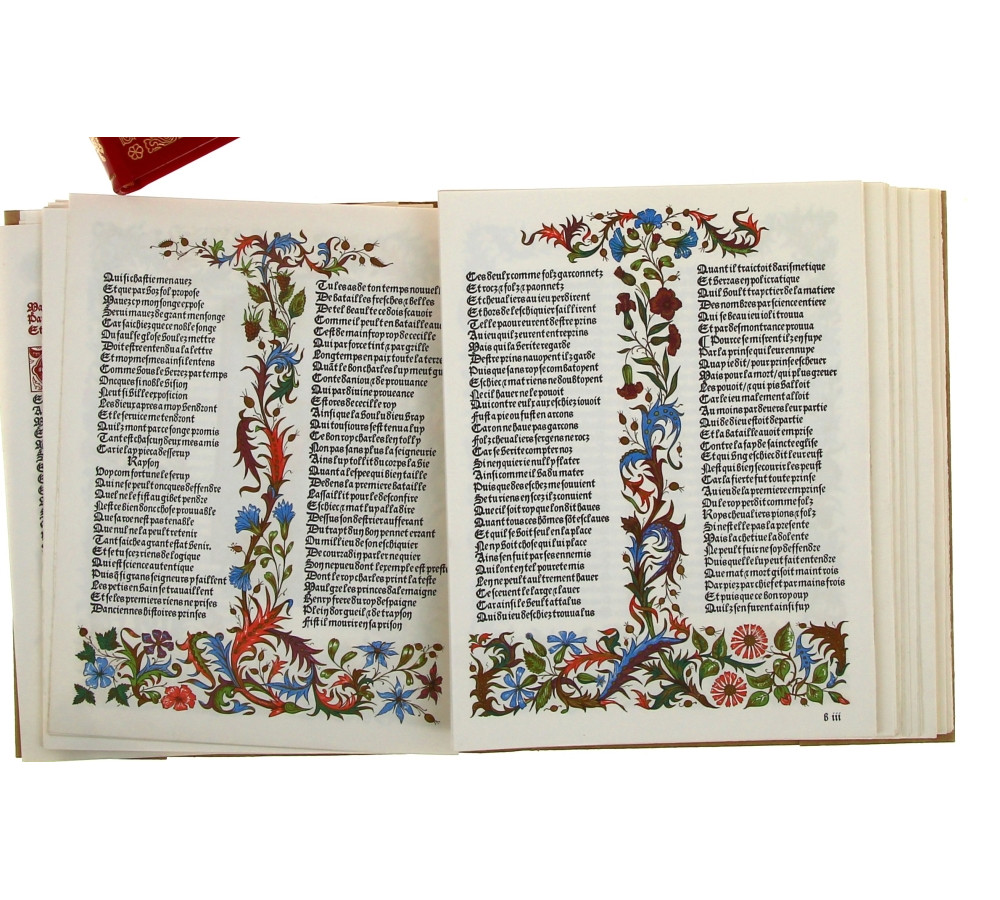 Qui si chastie menauez
Et que par voz fol propose
Mauez cy mon songe expose
Serui mauez de grant mensonge
Car saichiez que ce noble songe
Ou faulse glose voulez mettre
Doit estre entendu a la lettre
Et moy mesmes ainsi lentens
Comme vous le verrez par temps
Oncques si noble vision
Neut si ville exposicion
Les dieux apres a moy vendront
Et le seruice me tendront
Quilz mont par ce songe promis
Tant est chascun deux mes amis
Car ie lay pieca desseruy
Rayson
Voy com fortune le seruy
Qui ne se peult oncques deffendre
Quelle ne le fist au gibet pendre
Nestce bien doncchose prouuable
Que sa roe nest pas tenable
Que nul ne la peult retenir
Tant saiche a grant estat venir
Et se tu scez riens de logique
Qui est science autentique
Puis q̃ si grans seigneurs y faillent
Les petis en vain se trauaillent
Et se les premiers riens ne prises
Danciennes histoires prinses
Tules as de ton temps nouuell
De batailles fresches & belles
De tel beaulte ce dois scauoir
Comme il peult en bataille auo
Cest de mainfroy roy de cecille
Qui par force tint & par grille
Longtemps en paix toute la terre
Quãt le bon charles luy meut gu
Conte daniou & de prouuance
Qui par diuine proueance
Est ores de cecille roy
Ainsi que la voulu dieu vray
Qui tousiours sest tenu a luy
Ce bon roy charles len tolly
Non pas sans plus la seigneurie
Ains luy tollit du corps la vie
Quant a lespee qui bien taille
Dens de la premiere bataille
Lassaillit pour le desconfire
Eschiec & mat luy alla dire
Dessus son destrier aufferant
Du trayt dun bon pennet errant
Du millieu de son eschiquier
De couradin parler ne quier
Son nepueu dont lexemple est prest
Dont le roy charles print la teste
Maulgre les princes dalemaigne
Henry frere du roy despaigne
Plein dorgueil & de trayson
Fist il mourir en sa prison
Ces deulx comme folz garconnetz
Et rocz & folz & paonnetz
Et cheualiers au ieu perdirent
Et hors de leschiquier saillirent
Telle paour eurent destre prins
Au ieu quilz eurent entreprins
Mais qui la verite regarde
Destre prins nauoyent ilz garde
Puis que sans roy se combatoyent
Eschiec & mat riens ne doubtoyent
Ne cil hauer ne le pouoit
Qui contre eulx aux eschiez iouoit
Fust a pie ou fust en arcons
Car on ne haue pas garcons
Folz cheualiers sergens ne rocz
Car se verite compter noz
Si nen quier ie nully flater
Ainsi comme il va du mater
Puis que des eschiez me souuient
Se tu riens en scez il conuient
Que cil soit roy que lon dit haues
Quant tous ces hõmes sõt esclaues
Et quil se voit seul en la place
Ne ny voit chose qui luy place
Ains sen fuit par ses ennemis
Qui lont en tel pourete mis
Ley ne peult aultrement hauer
Ce sceuent le large & lauer
Car ainsi le veult attalus
Qui du ieu des chiez trouua lus
Quant il traictoit darismetique
Et verras en policratique
Quil voult traictier de la matiere
Des nombres par science entiere
Qui se beau ieu ioli trouua
Et par desmontrance prouua
¶ Pource se misrent ilz en fuye
Par la prinse qui leur ennuye
Quay ie dit / pour prinse escheuer
Mais pour la mort / qui plus greuer
Les pouoit / & qui pis valloit
Car le ieu malement alloit
Au moins par deuers leur partie
Qui de dieu estoit departie
Et la bataille auoit emprise
Contre la foy de saincte eglise
Et qui vng eschiec dit leur eust
Nest qui bien secourir les peust
Car la fierte fut toute prinse
Au ieu de la premiere emprinse
Ou le roy perdit comme folz
Roys cheualiers pions & folz
Si nest elle pas la presente
Mais la chetiue la dolente
Ne peult fuir ne soy deffendre
Puis quelle luy peut fait entendre
Que mat & mort gisoit maintrois
Par piez par chief et par mains frois
Et puis que ce bon roy ouy
Quilz sen furent ainsi fuy
b iii